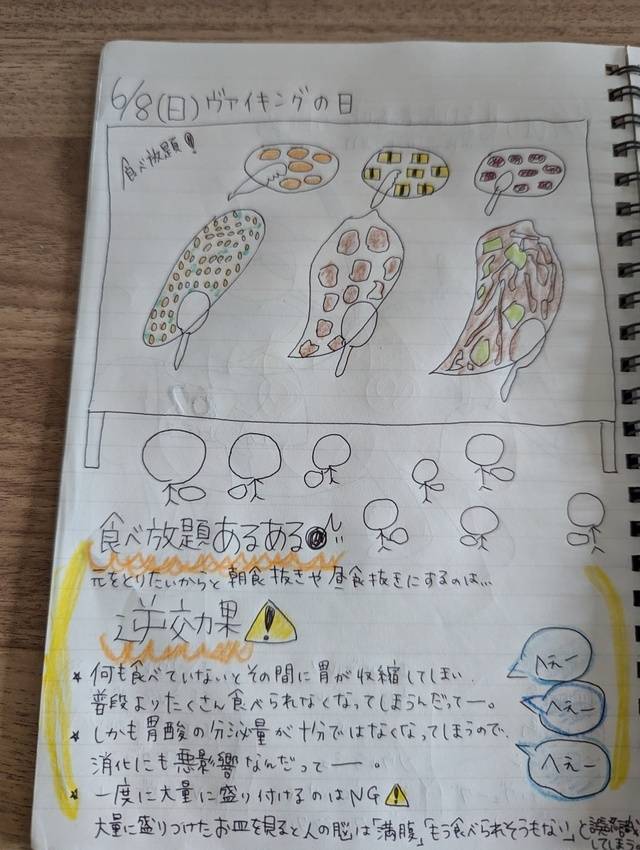 6/8(日)ヴァイキングの日
食べ放題!
食べ放題あるある
元をとりたいからと朝食抜きや昼食抜きにするのは…
逆効果
!
★ 何も食べていないとその間に胃が収縮してしまい、
普段よりたくさん食べられなくなってしまうんだってー。
へぇー
へぇー
★ しかも胃酸の分泌量が十分ではなくなってしまうので、
消化にも悪影響なんだってー。
へぇー
★ 一度に大量に盛り付けるのはNG
!
大量に盛りつけたお皿を見ると人の脳は「満腹」「もう食べられそうもない」と誤認識
してしまう